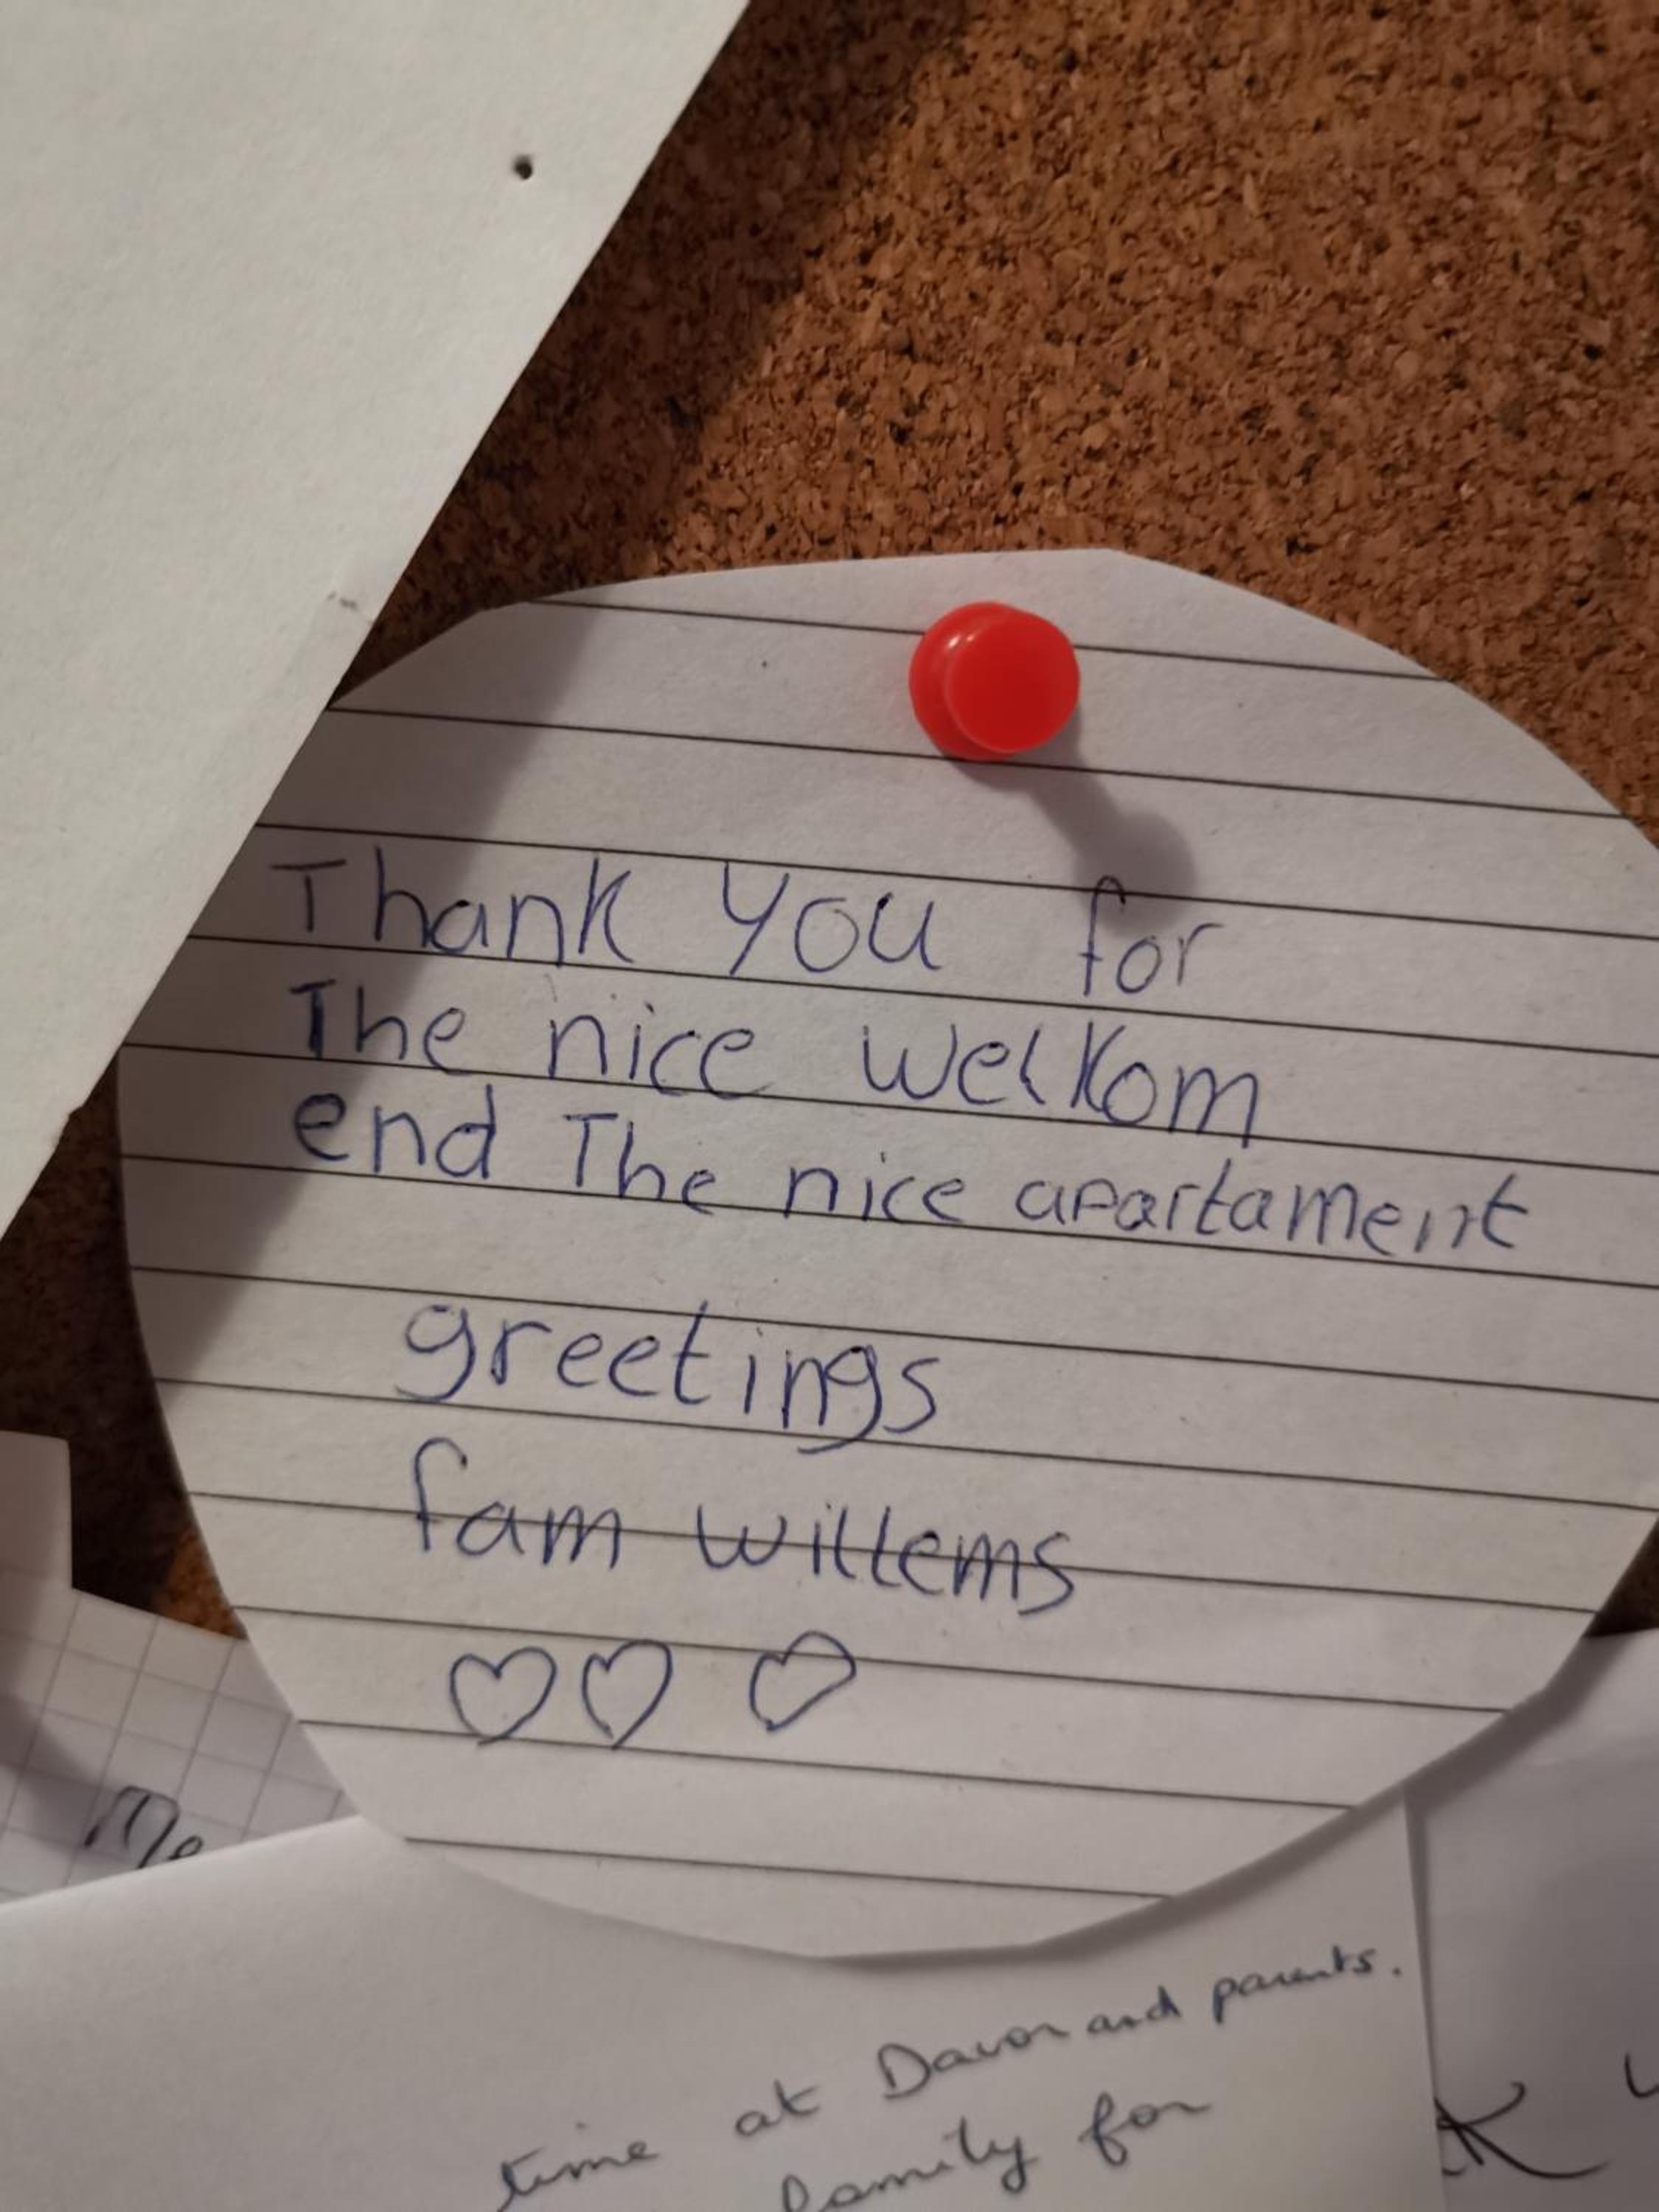 Thank you for
The nice welkom
end The nice apartament
greetings
fam willems
Me
time at Davor and parents.
family for
K